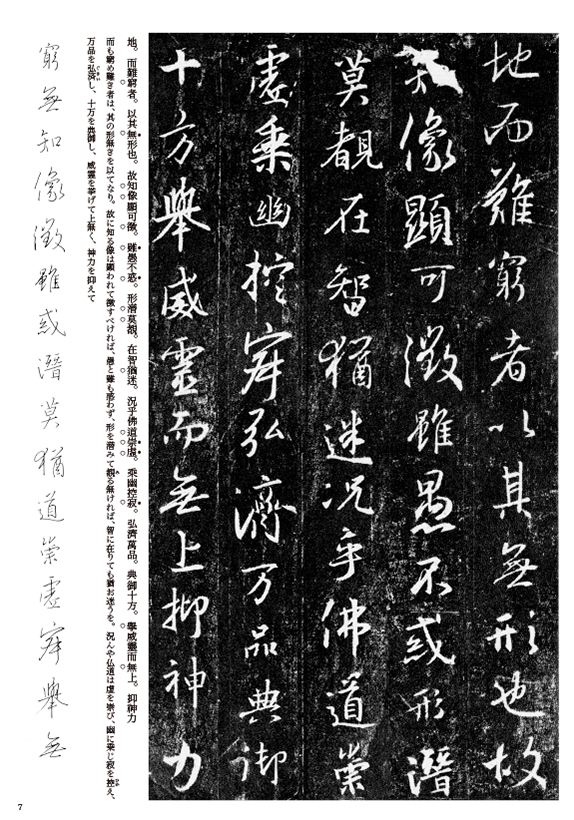 地而難窮者以其無形也故
知像顯可徴雖愚不惑形潛
莫覩在智猶迷況乎佛道崇
虛乗幽控寂弘濟万品典御
十方舉威靈而無上抑神力
地。而難窮者。以其無形也。故知像顯可徴。雖愚不惑。形潛莫覩。在智猶迷。況乎佛道崇虛。乘幽控寂。弘濟萬品。典御十方。舉威靈而無上。抑神力
而も窮め難き者は、其の形無きを以てなり。故に知る像は顕われて徴すべければ、愚と雖も惑わず、形を潜みて覩る無ければ、智に在りても猶お迷うを。況んや仏道は虚を崇び、幽に乗じ寂を控え、
万品を弘済し、十方を典御し、威霊を挙げて上無く、神力を抑えて
窮無知像徴雖或潛莫猶道崇虛寂舉無
7